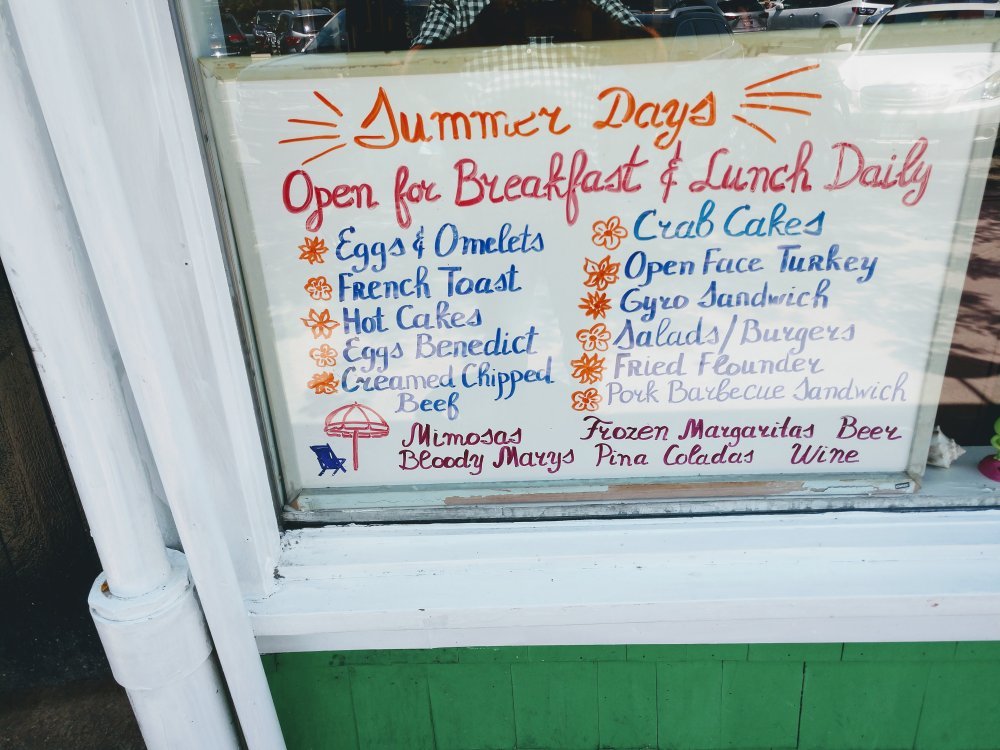 Summer Days
Open for Breakfast & Lunch Daily
Eggs & Omelets
French Toast
Hot Cakes
Eggs Benedict
Creamed Chipped
Beef
Crab Cakes
Open Face Turkey
Gyro Sandwich
Salads/Burgers
Fried Flounder
Pork Barbecue Sandwich
Mimosas Frozen Margaritas Beer
Bloody Marys Pina Coladas Wine